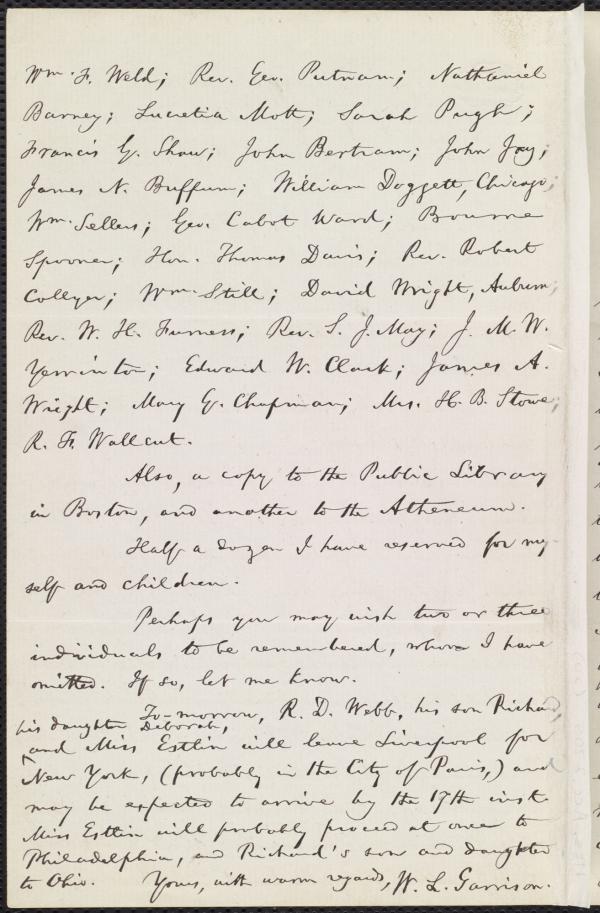 Wm. F. Weld; Rev. Geo. Putnam; Nathaniel
Barney; Lucretia Mott; Sarah Pugh;
Francis G. Shaw; John Bertram; John Jay;
James N. Buffum; William Doggett, Chicago;
Wm. Sellers; Geo. Cabot Ward; Bourne
Spooner; Hon. Thomas Davis; Rev. Robert
Collyer; Wm. Still; David Wright, Auburn;
Rev. W. H. Furness; Rev. S. J. May; J. M. W.
Yerrinton; Edward W. Clark; James A.
Wright; Mary G. Chapman; Mrs. H. B. Stowe;
R. F. Wallcut.
Also, a copy to the Public Library
in Boston, and another to the Atheneum.
Half a dozen I have reserved for my-
self and children.
Perhaps you may wish two or three
individuals to be remembered, whom I have
omitted. If so, let me know.
To-morrow, R. D. Webb, his son Richard,
his daughter Deborah,
and Miss Estlin will leave Liverpool for
New York, (probably in the City of Paris,) and
may be expected to arrive by the 17th inst.
Miss Estlin will probably proceed at once to
Philadelphia, and Richard's son and daughter
to Ohio. Yours, with warm regards, W. L. Garrison.